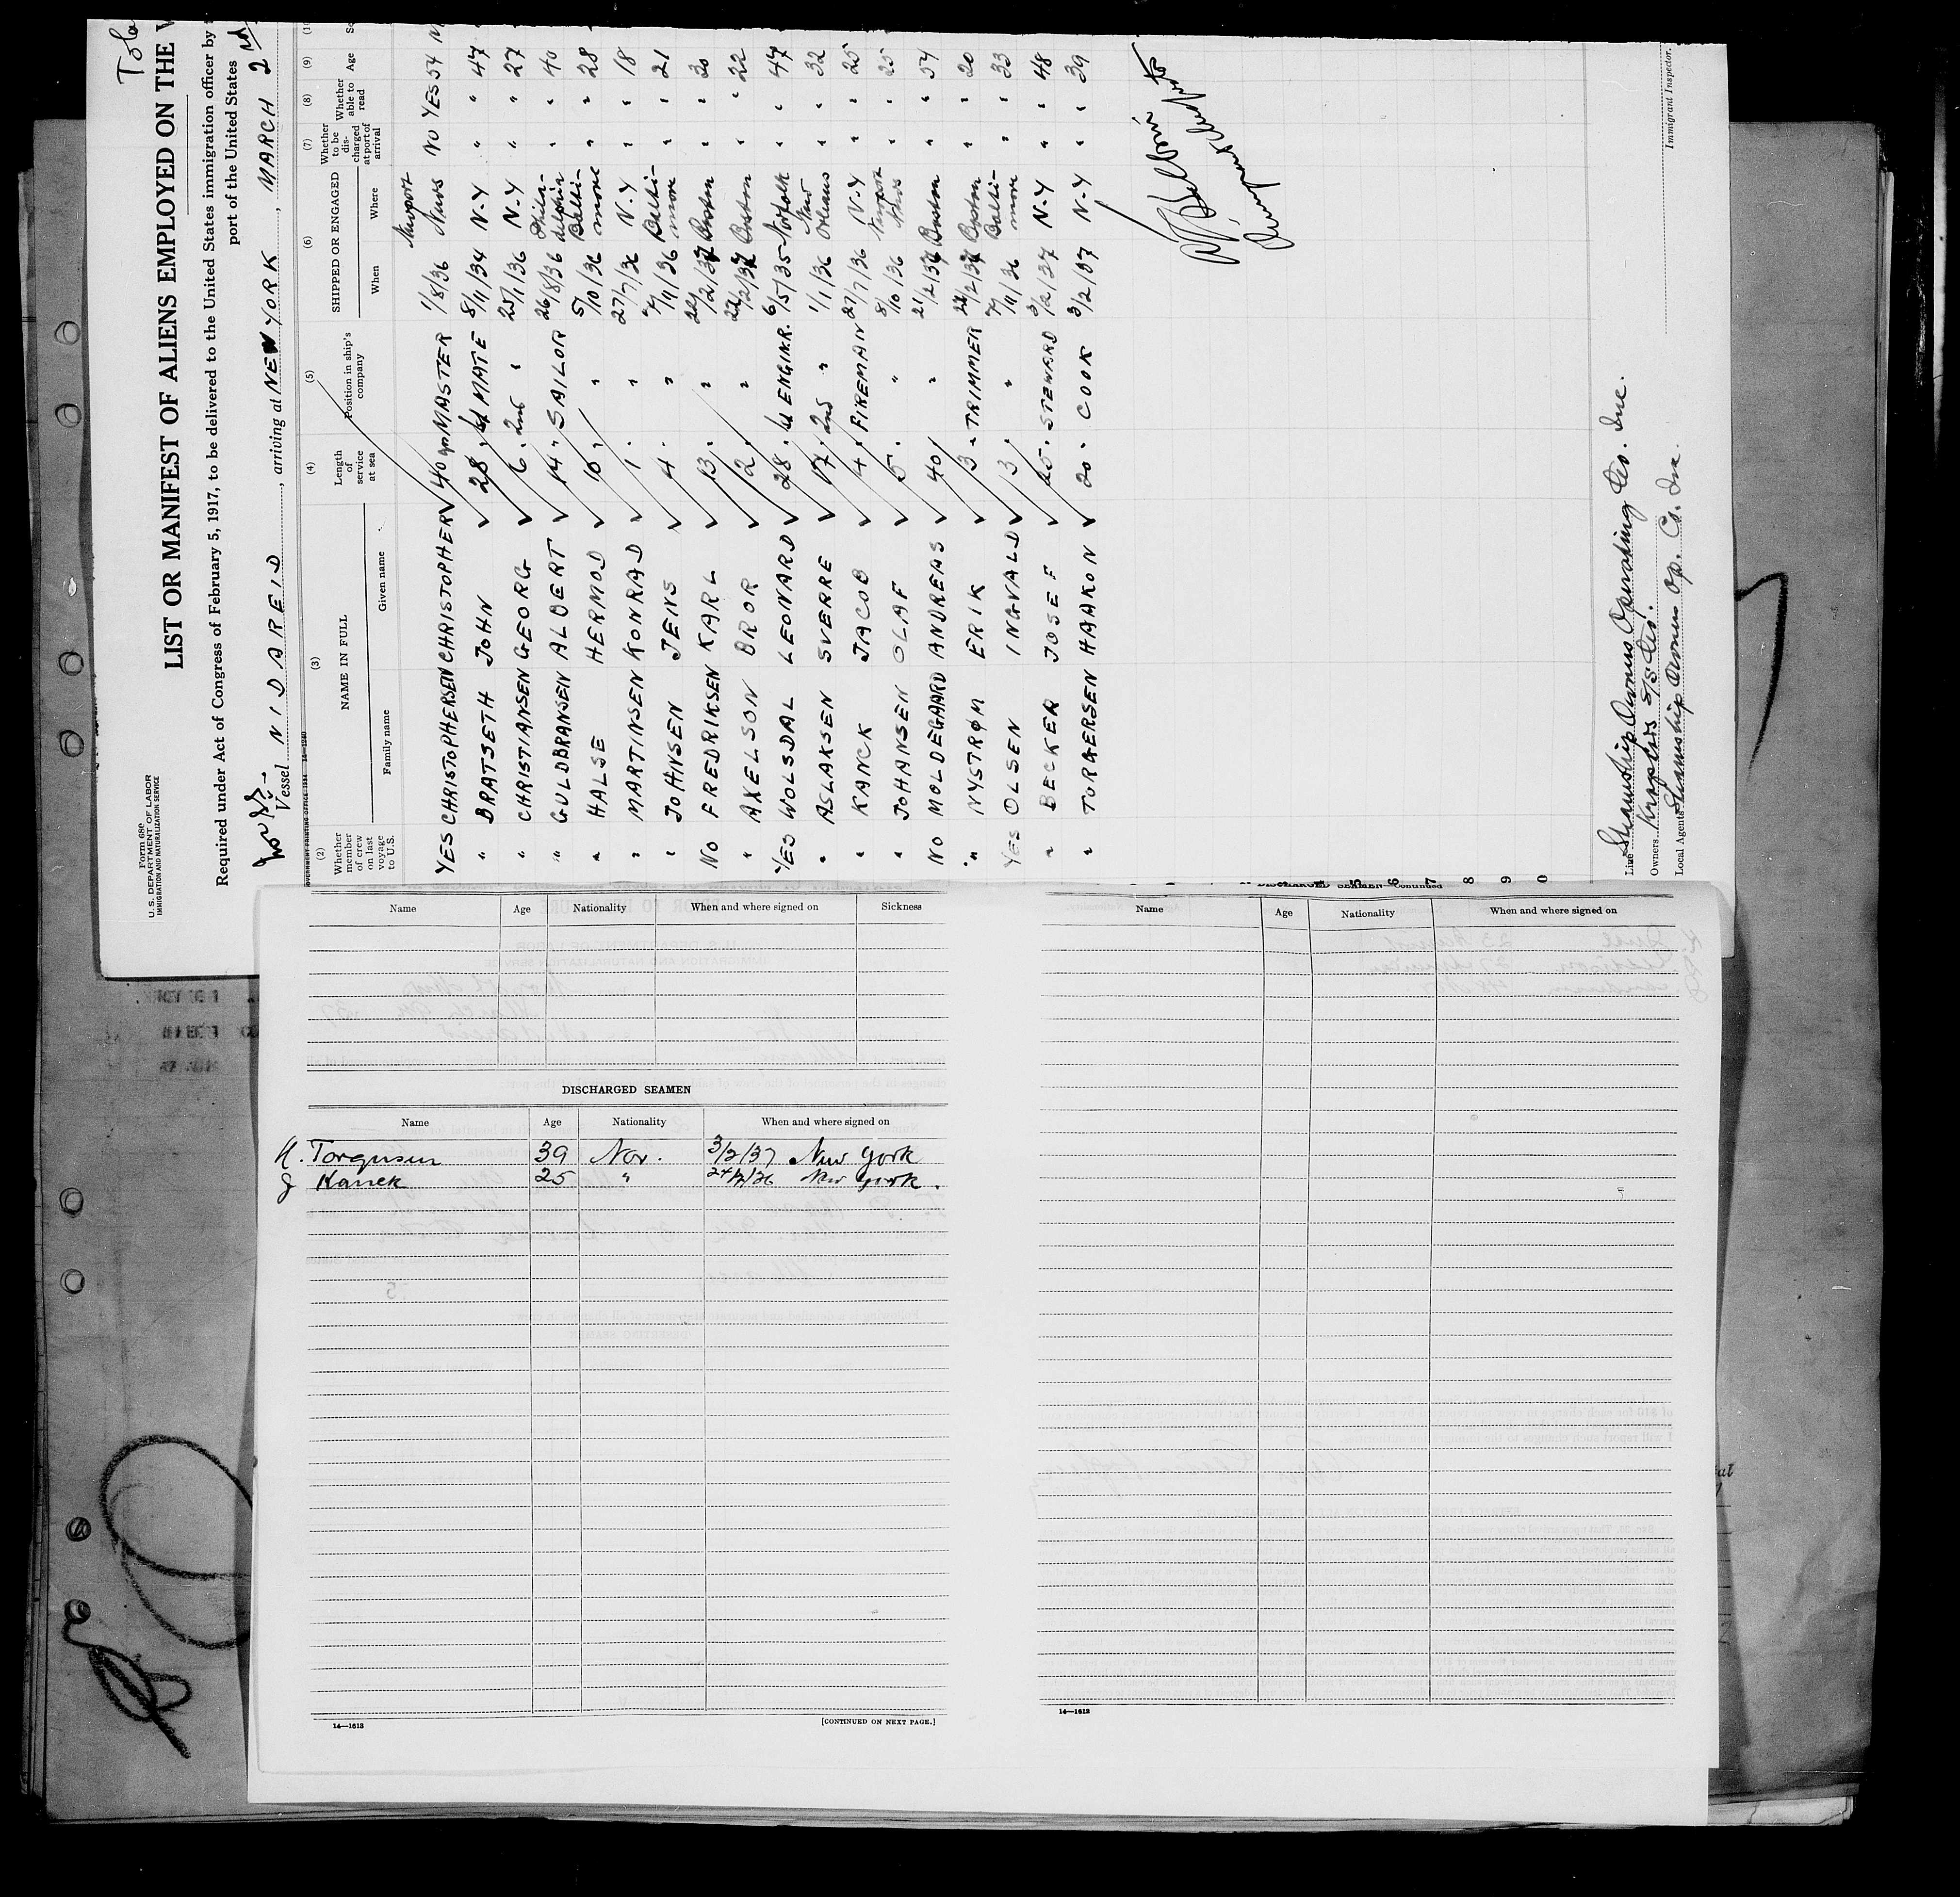 Form 680
U. S. DEPARTMENT OF LABOR
IMMIGRATION AND NATURALIZATION SERVICE
LIST OR MANIFEST OF ALIENS EMPLOYED ON THE V
Required under Act of Congress of February 5, 1917, to be delivered to the United States immigration officer by
port of the United States
Vessel NIDAREID, arriving at NEW YORK, MARCH 2nd
(2) (3) (4) (5) (6) (7) (8) (9)
Whether member of crew on last voyage to U.S.
NAME IN FULL
Family name Given name
Length of service at sea
Position in ship's company
SHIPPED OR ENGAGED
When Where
Whether to be discharged at port of arrival
Whether able to read
Age
YES CHRISTOPHERSEN CHRISTOPHER 40 yrs MASTER 1/8/36 Newport News NO YES 54
" BRATSETH JOHN 28 " 1st MATE 8/11/34 N-Y " " 47
" CHRISTIANSEN GEORG 6 " 2nd " 25/1/36 N-Y " " 27
" GULDBRANSEN ALBERT 14 " SAILOR 26/8/36 Philadelphia " " 40
" HALSE HERMOD 10 " " 5/10/36 Baltimore " " 28
" MARTINSEN KONRAD 1 " " 27/7/36 N.Y " " 18
" JOHNSEN JENS 4 " " 7/11/36 Baltimore " " 21
NO FREDRIKSEN KARL 13 " " 22/2/37 Boston " " 30
" AXELSON BROR 2 " " 22/2/37 Boston " " 22
YES WOLSDAL LEONARD 28 " 1st ENGINR. 6/5/35 Norfolk " " 47
" ASLAKSEN SVERRE 17 " 2nd " 1/1/36 New Orleans " " 32
" KANCK JACOB 4 " FIREMAN 27/7/36 N-Y " " 25
" JOHANSEN OLAF 5 " " 8/10/36 Newport News " " 25
NO MOLDEGAARD ANDREAS 40 " 21/2/37 Boston " " 54
" NYSTRØM ERIK 3 " TRIMMER 22/2/37 Boston " " 20
YES OLSEN INGVALD 3 " " 7/11/36 Baltimore " " 33
" BECKER JOSEF 25 " STEWARD 3/2/37 N-Y " " 48
" TORGERSEN HAAKON 20 " COOK 3/2/37 N-Y " " 39
Line Steamship Owners Operating Co. Inc.
Owners
Local Agents Steamship Owners Op. Co. Inc.
Immigrant Inspector.
Name Age Nationality When and where signed on Sickness
DISCHARGED SEAMEN
Name Age Nationality When and where signed on
H. Torgersen 39 Nor. 3/2/37 New York
J Kanck 25 " New York.
14—1613
[CONTINUED ON NEXT PAGE.]
DISCHARGED SEAMEN—Continued
Name Age Nationality When and where signed on
14—1613
7
8
9
0